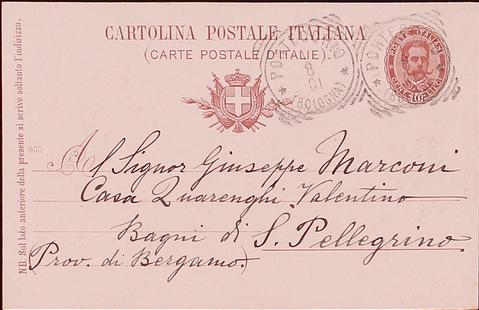 CARTOLINA POSTALE ITALIANA
(CARTE POSTALE D'ITALIE)
POSTE ITALIANE
10
8
01
(BOLOGNA)
NB. Sul lato anteriore della presente si scrive soltanto l'indirizzo.
900
Al Signor Giuseppe Marconi
Casa Quarenghi Valentino
Bagni di S. Pellegrino
(Prov. di Bergamo.)